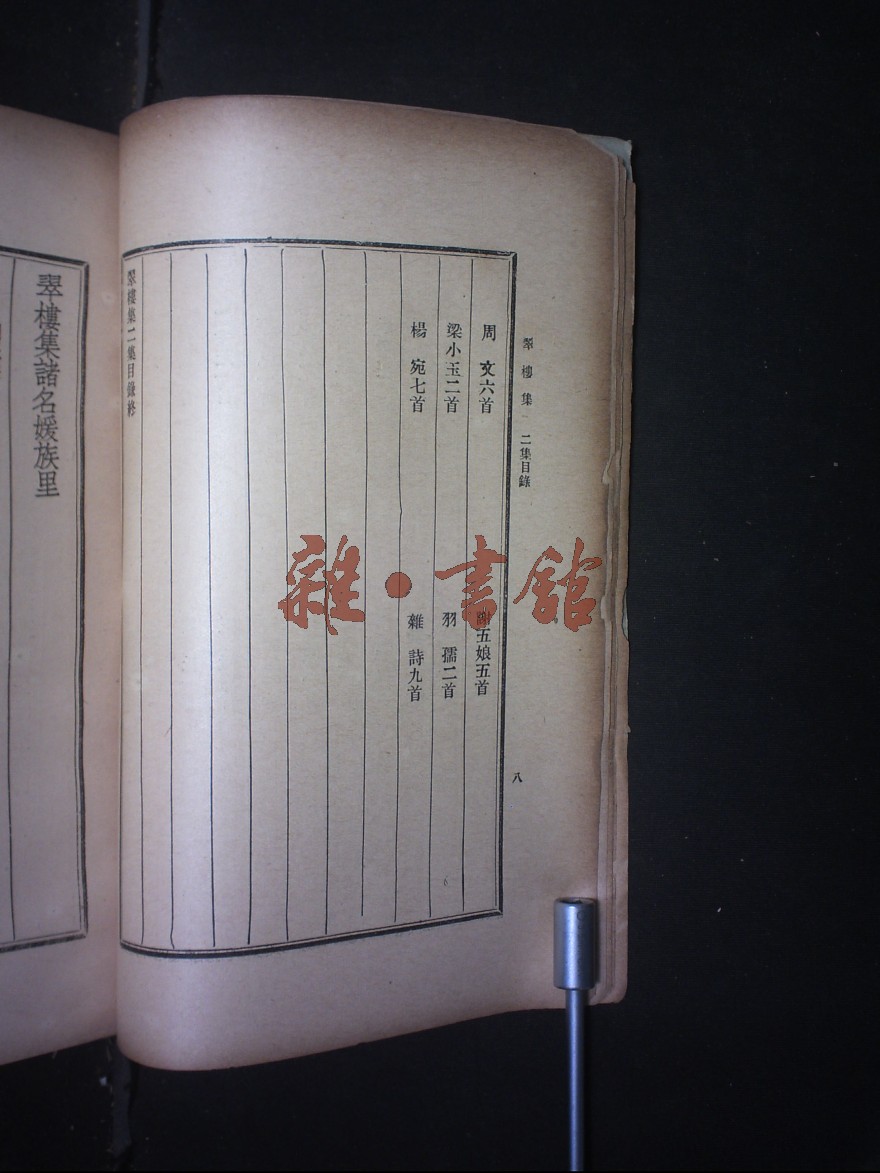 翠樓集 二集目錄
八
周 文六首
謝五娘五首
梁小玉二首
羽 孺二首
楊 宛七首
雜 詩九首
翠樓集二集目錄終
翠樓集諸名媛族里
雜·書館